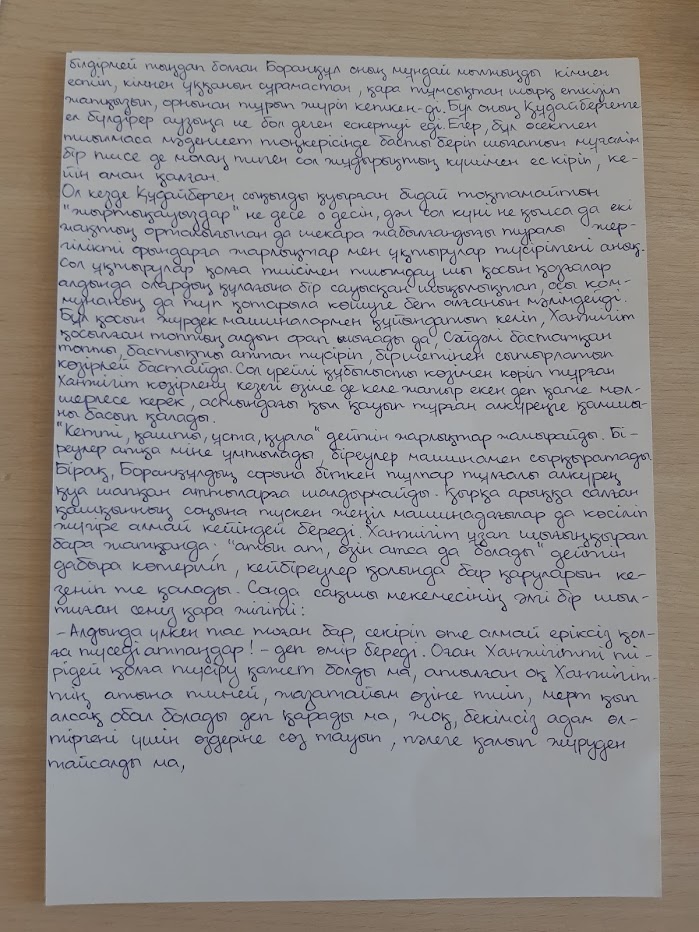 білдірмей тыңдап болған Боранқұл оның мұндай мылжыңды кімнен
есітіп, кімнен ұққанын сұрамастан, қара тұмсықтан шарқ еткізіп
жапқызып, орнынан тұрып жүріп кеткен-ді. Бұл оның Құдайбергенге
ел бүлдірер аузыңа ие бол деген ескертуі еді. Егер, бұл өсектен
тыйылмаса мәдениет төңкерісінде басты беріп шығатын мұғалім
бір тисе де молақ тиген сол жұдырықтың күшімен ес кіріп, ке-
йін аман қалған.
Ол кезде Құдайберген сыңылды қуырған бидай тоқтамайтын
"жыртықауыздар" не десе о десін, дәл сол күні не қылса да екі
жақтың орталығынан да шекара жабылғандығы туралы жер-
гілікті орындарға жарлықтар мен ұқтырулар түсірілгені анық.
Сол ұқтырулар қолға тиісімен тыймдау шы қосын қозғалар
алдында олардың құлағына бір сауысқан шықылықтап, осы ком-
мунаның да түп қотарыла көшуге бет алғанын мәлімдейді.
Бұл қосын жүрдек машиналармен құйындатып келіп, Ханжігіт
қосылған топтың алдын орап шығады да, Сәйдәлі бастатқан
топты, бастықты аттан түсіріп, бірлетінен сыпырлатып
көзірлей бастайды. Сол үрейлі құбылысты көзімен көріп тұрған
Ханжігіт көзірлену кезегі өзіне де келе жатыр екен деп қапе мөл-
шерлесе керек, астындағы қыл қауып тұрған алкүреңге қамшы-
ны басып қалады.
"Кетті, қашты, ұста, қуала" дейтін жарлықтар жамырайды. Бі-
реулер атқа міне ұмтылады, біреулер машинамен сырқыратады.
Бірақ, Боранқұлдың сорына біткен тұлпар тұлғалы алкүрең
қуа шапқан аттыларға шалдырмайды. Қырқа арыққа салған
қашқынның соңына түскен жеңіл машинадағылар да көсіліп
жүгіре алмай кейіндей береді. Ханжігіт ұзап шығыңқырап
бара жатқанда; "атын ат, өзін атса да болады" дейтін
дабыра көтеріліп, кейбіреулер қолында бар қаруларын ке-
зеніп те қалады. Сонда сақшы мекемесінің әлгі бір шыл-
тиған семіз қара жігіті:
– Алдында үлкен тас тоған бар, секіріп өте алмай еріксіз қол-
ға түседі атпаңдар! – деп әмір береді. Оған Ханжігітті ті-
рідей қолға түсіру қажет болды ма, атылған оқ Ханжігіт-
тің атына тимей, жазатайым өзіне тиіп, мерт қып
алсақ обал болады деп қарады ма, жоқ, бекімсіз адам өл-
тіргені үшін өздеріне сөз тауып, пәлеге қалып жүруден
тайсалды ма,